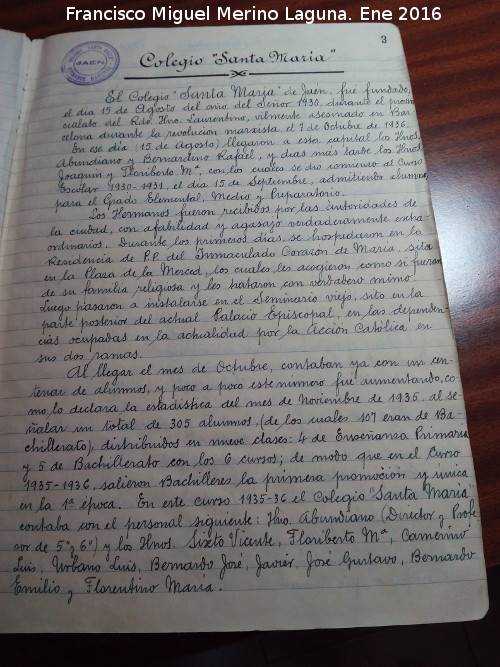 Francisco Miguel Merino Laguna. Ene 2016
3
JAEN
Colegio "Santa María"
El Colegio "Santa María" de Jaén, fue fundado,
el día 15 de Agosto del año del Señor 1930, durante el provin
cialato del Rdo. Hno. Laurentino, vilmente asesinado en Bar
celona durante la revolución marxista, el 7 de Octubre de 1936.
En ese día (15 de Agosto) llegaron a esta capital los Hnos.
Abundiano y Bernardino Rafael, y días más tarde los Hnos.
Joaquín y Floriberto Mª, con los cuales se dio comienzo al Curso
Escolar 1930-1931, el día 15 de Septiembre, admitiendo alumnos
para el Grado Elemental, Medio y Preparatorio.
Los Hermanos fueron recibidos por las Autoridades de
la ciudad, con afabilidad y agasajo verdaderamente extra
ordinarios. Durante los primeros días, se hospedaron en la
Residencia de P.P. del Inmaculado Corazón de María, sita
en la Plaza de la Merced, los cuales les acogieron como si fueran
de su familia religiosa y les trataron con verdadero mimo.
Luego pasaron a instalarse en el Seminario viejo, sito en la
parte posterior del actual Palacio Episcopal, en las dependen
cias ocupadas en la actualidad por la Acción Católica en
sus dos ramas.
Al llegar el mes de Octubre, contaban ya con un cen-
tenar de alumnos, y poco a poco este número fue aumentando, co-
mo lo declara la estadística del mes de Noviembre de 1935, al se-
ñalar un total de 305 alumnos, (de los cuales 107 eran de Ba-
chillerato), distribuidos en nueve clases: 4 de Enseñanza Primaria
y 5 de Bachillerato con los 6 cursos; de modo que en el Curso
1935-1936, salieron Bachilleres la primera promoción y única
en la 1ª época. En este curso 1935-36 el Colegio "Santa María"
contaba con el personal siguiente: Hno. Abundiano (Director y Profe-
sor de 5º y 6º) y los Hnos. Sixto Vicente, Floriberto Mª, Camerino
Luis, Urbano Luis, Bernardo José, Javier, José Gustavo, Bernardo
Emilio y Florentino María.